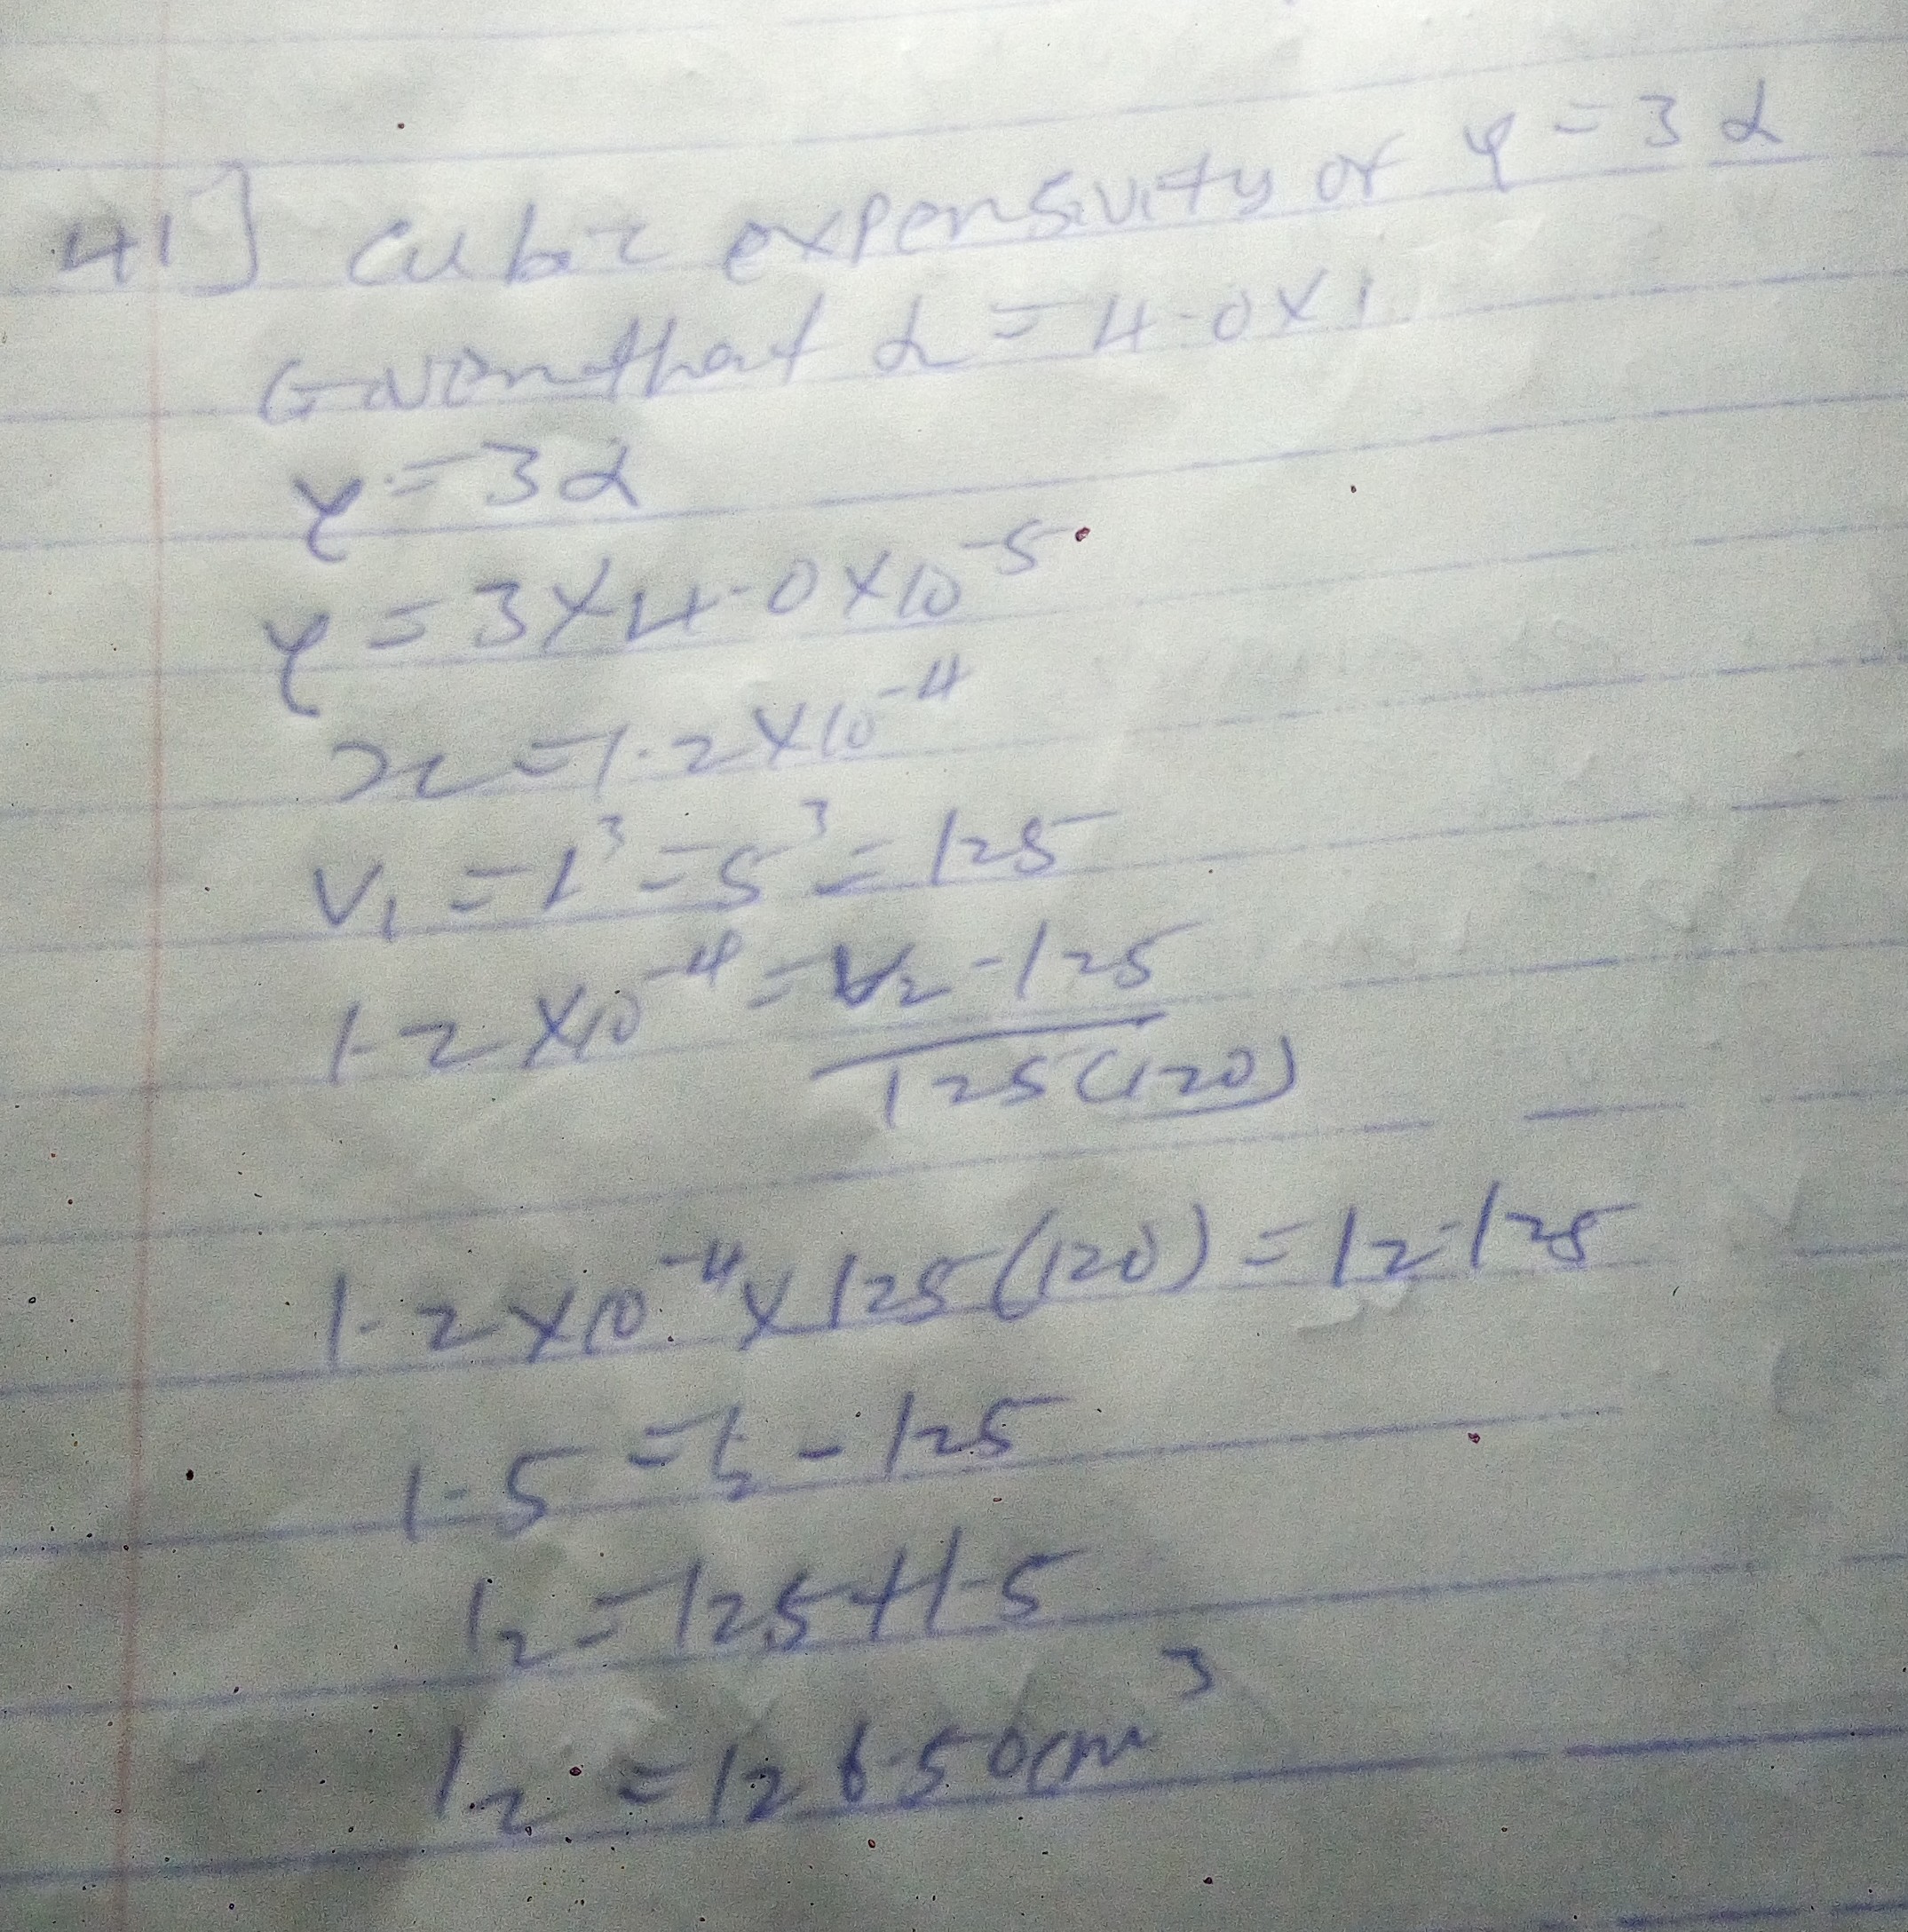 41] Cubic expensivity or γ = 3α
Given that α = 4.0 x 1
γ = 3α
γ = 3 x 4.0 x 10⁻⁵
x = 1.2 x 10⁻⁴
V₁ = L³ = 5³ = 125
1.2 x 10⁻⁴ = V₂ - 125
125(120)
1.2 x 10⁻⁴ x 125(120) = l₂ - 125
1.5 = l₂ - 125
l₂ = 125 + 1.5
l₂ = 126.50cm³